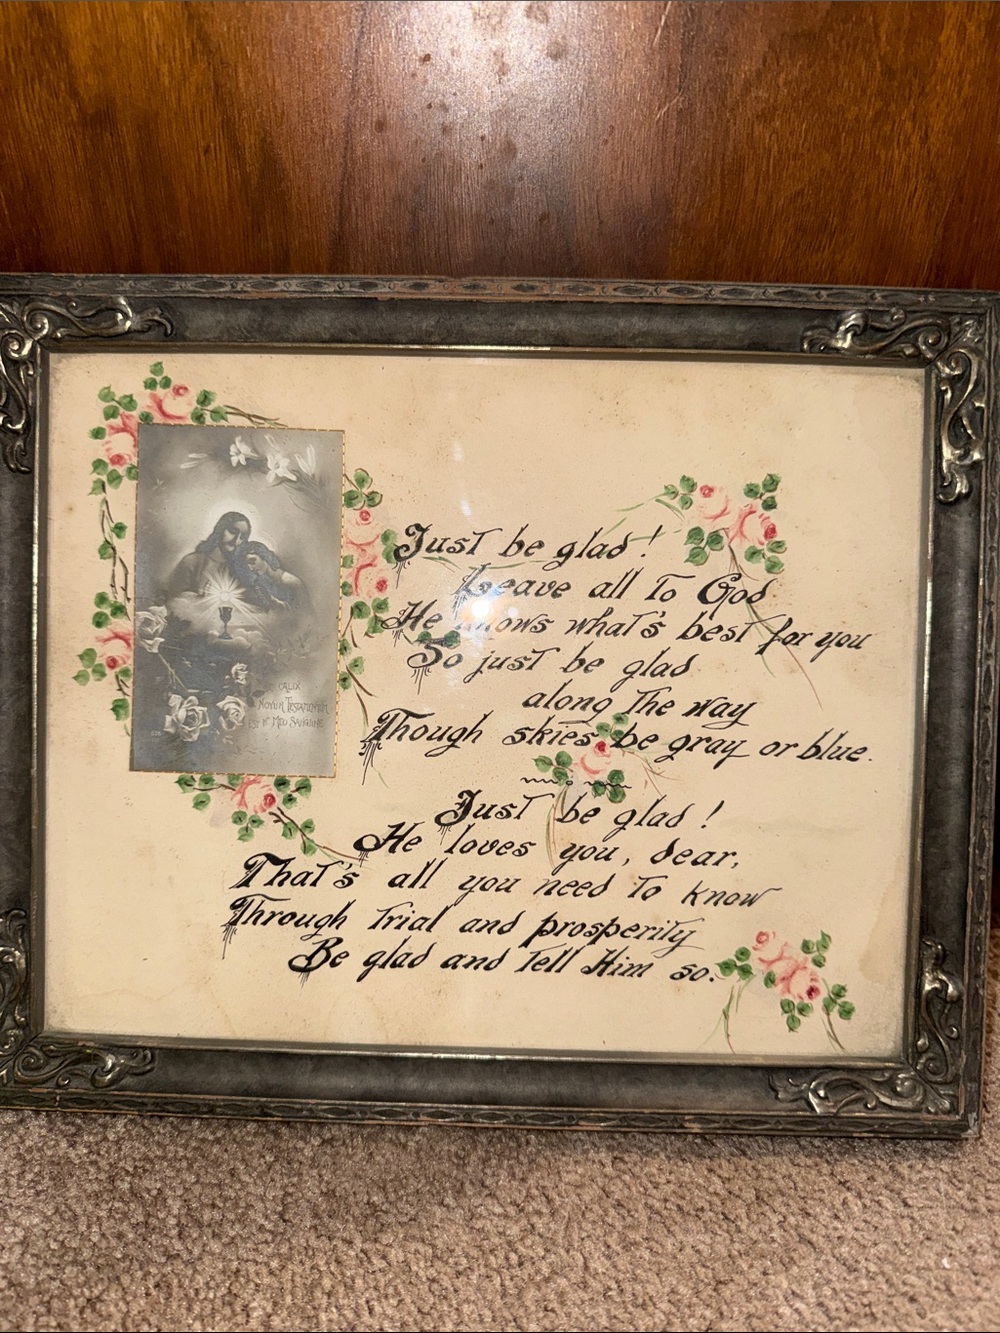 CALIX
NOVUM TESTAMENTUM
EST IN MEO SANGUINE
Just be glad!
Leave all to God
He knows what's best for you
So just be glad
along the way
Though skies be gray or blue.
Just be glad!
He loves you, dear,
That's all you need to know
Through trial and prosperity
Be glad and tell Him so.